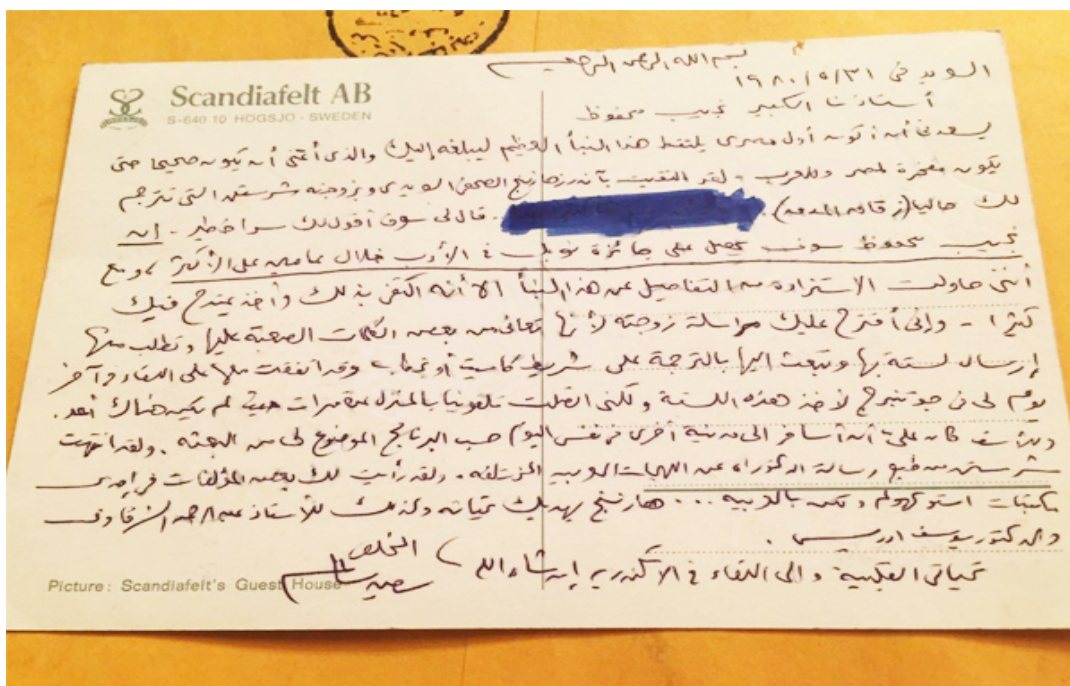 بسم الله الرحمن الرحيم
السويد فى ١٩٨٠/٥/٣١
Scandiafelt AB
S-640 10 HÖGSJÖ · SWEDEN
أستاذنا الكبير نجيب محفوظ
يسعدنى أن أكون أول مصرى يلتقط هذا النبأ العظيم ليبلغه إليك والذى أتمنى أن يكون صحيحا حتى
يكون مفخرة لمصر وللعرب - لقد التقيت بأندرز هارننج الصحفى السويدى وبزوجته شرستن التى تترجم
لك حاليا (زقاق المدق). قال لى سوف أقول لك سرا خطيرا - إن
نجيب محفوظ سوف يحصل على جائزة نوبل فى الأدب خلال عامين على الأكثر، ومع
أننى حاولت الاستزادة من التفاصيل عن هذا النبأ الا أنه اكتفى بذلك وأخذ يمتدح فيك
كثيرا - وإنى أقترح عليك مراسلة زوجته لأنها تعانى من بعض الكلمات الصعبة عليها وتطلب منها
إرسال لستة بها وتبعث اليها بالترجمة على شريط كاسيت أو خطاب وقد اتفقت معها على اللقاء آخر
يوم لى فى جوتنبرج لأخذ هذه اللستة ولكنى اتصلت تلفونيا بالمنزل عدة مرات حيث لم يكن هناك أحد.
وللأسف كان علىّ أن أسافر الى مدينة أخرى فى نفس اليوم حسب البرنامج الموضوع لى من البعثة. ولقد انتهت
شرستن من طبع رسالة الدكتوراه عن اللهجات العربيه المختلفه. ولقد رأيت لك بعض المؤلفات فى إحدى
مكتبات استوكهولم ولكن بالعربيه ... هارننج يهديك تحياته وكذلك للأستاذ عبد الرحمن الشرقاوى
والدكتور يوسف ادريس.
تحياتى القلبية والى اللقاء فى الاسكندريه إن شاء الله
المخلص
سعيد سالم
Picture: Scandiafelt's Guest House